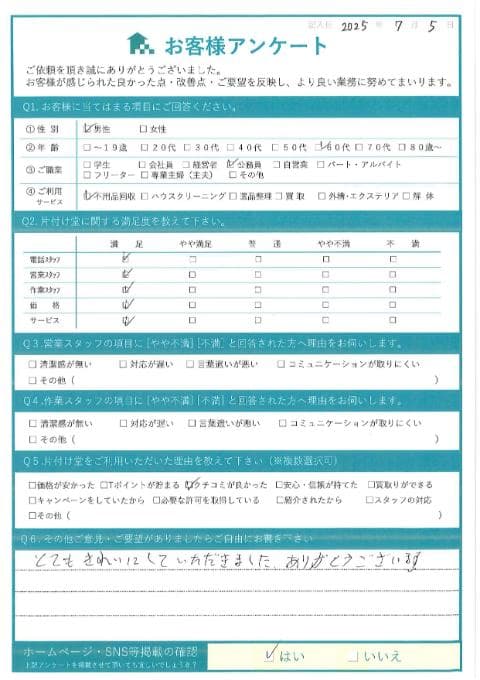 記入日 2025 年 7 月 5 日
お客様アンケート
ご依頼を頂き誠にありがとうございました。
お客様が感じられた良かった点・改善点・ご要望を反映し、より良い業務に努めてまいります。
Q1. お客様に当てはまる項目にご回答ください。
①性 別 ☑男性 □女性
②年 齢 □～19歳 □20代 □30代 □40代 □50代 ☑60代 □70代 □80歳～
③ご職業 □学生 □会社員 □経営者 ☑公務員 □自営業 □パート・アルバイト
□フリーター □専業主婦(主夫) □その他
④ご利用サービス ☑不用品回収 □ハウスクリーニング □遺品整理 □買取 □外構・エクステリア □解体
Q2. 片付け堂に関する満足度を教えて下さい。
満 足 やや満足 普 通 やや不満 不 満
電話スタッフ ☑ □ □ □ □
営業スタッフ ☑ □ □ □ □
作業スタッフ ☑ □ □ □ □
価 格 ☑ □ □ □ □
サービス ☑ □ □ □ □
Q3. 営業スタッフの項目に[やや不満][不満]と回答された方へ理由をお伺いします。
□清潔感が無い □対応が遅い □言葉遣いが悪い □コミュニケーションが取りにくい
□その他( )
Q4. 作業スタッフの項目に[やや不満][不満]と回答された方へ理由をお伺いします。
□清潔感が無い □対応が遅い □言葉遣いが悪い □コミュニケーションが取りにくい
□その他( )
Q5. 片付け堂をご利用いただいた理由を教えて下さい(※複数選択可)
□価格が安かった □Tポイントが貯まる ☑クチコミが良かった □安心・信頼が持てた □買取りができる
□キャンペーンをしていたから □必要な許可を取得している □紹介されたから □スタッフの対応
□その他( )
Q6. その他ご意見・ご要望がありましたらご自由にお書き下さい
とてもきれいにしていただきました。ありがとうございます
ホームページ・SNS等掲載の確認
上記アンケートを掲載させて頂いても宜しいでしょうか？ ☑はい □いいえ